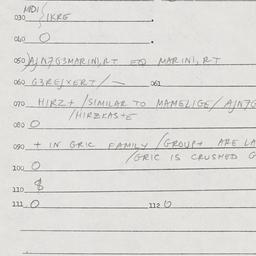 MDI
030 IKRE .
040 O .
050 AJN7G3MARINI,RT EQ MARINI,RT
060 G3REJXERT/ 061
070 HIRZ+ /SIMILAR TO MAMELIGE/ AJN7G
/HIRZKAS+E
080 O
090 + IN GRIC FAMILY /GROUP+ ARE LA
/GRIC IS CRUSHED G
100 O
110 $
111 O 112 O